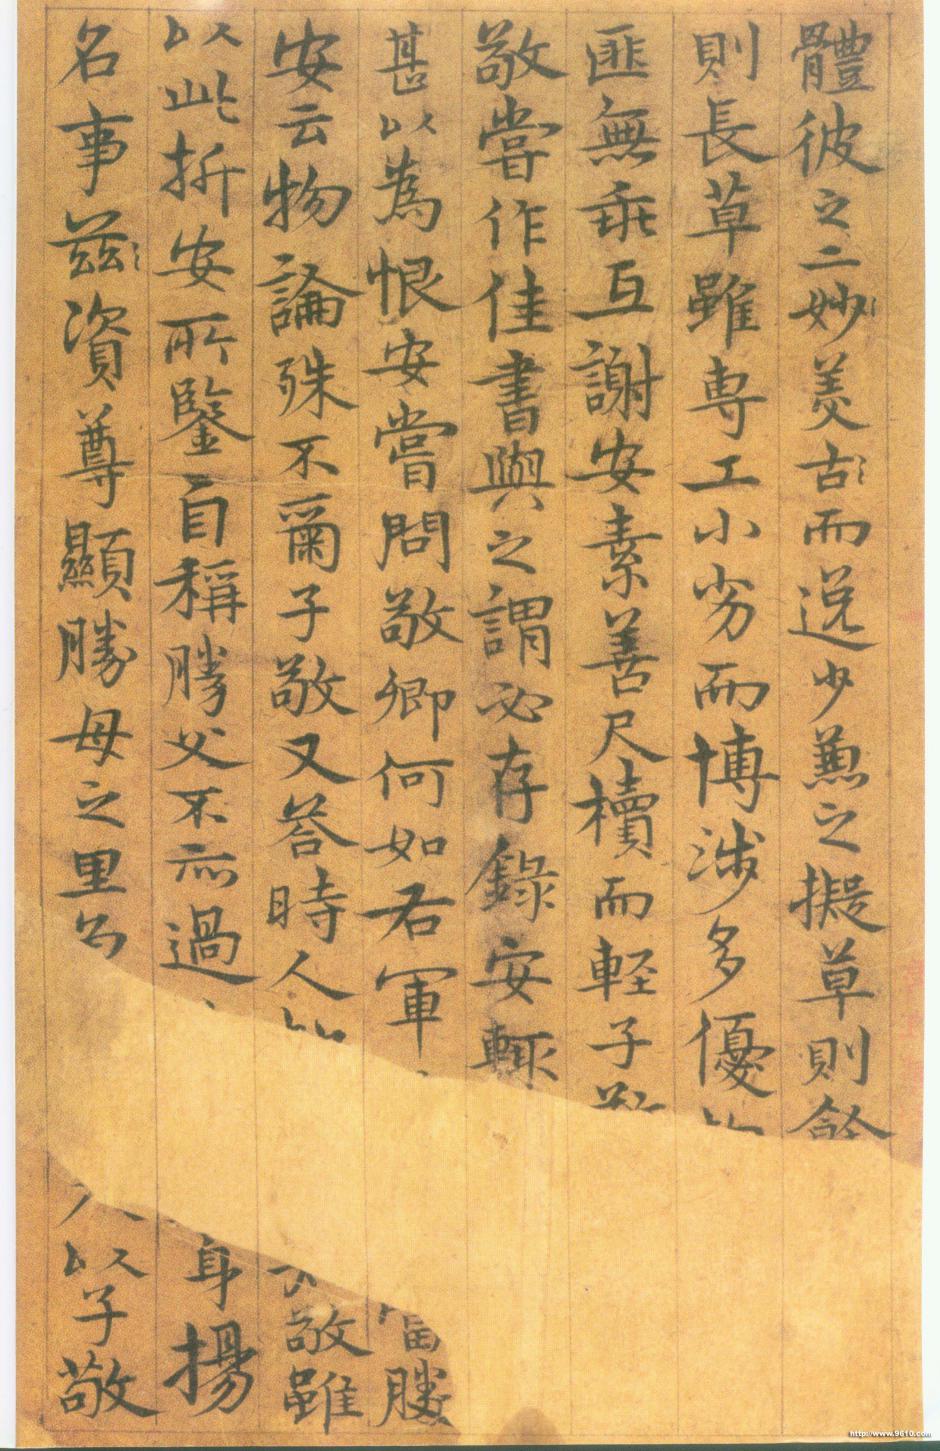 體彼之二妙羙古而逸少蒹之擬草則餘
則長草雖専工小劣而博涉多優
匪無乖互謝安素善尺牘而軽子敬
敬嘗作佳書與之謂必存錄安輒
甚以為恨安嘗問敬卿何如右軍當勝
安云物論殊不爾子敬又荅時人敬雖
以此折安所鑒自稱勝父不亦過身揚
名事茲資尊顯勝母之里以子敬
http://www.9610.com